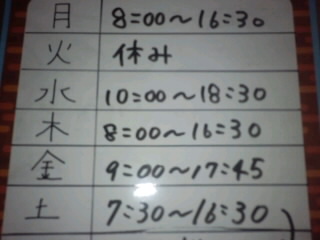 月 8:00〜16:30
火 休み
水 10:00〜18:30
木 8:00〜16:30
金 9:00〜17:45
土 7:30〜16:30